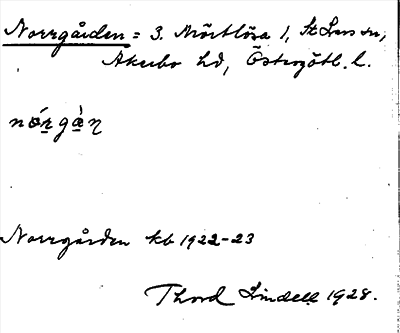 Norrgården = 3. Mörtlösa 1, St Lars sn,
Åkerbo hd, Östergötl. l.
nǿrgàn
Norrgården kb 1922-23
Thord Lindell 1928.